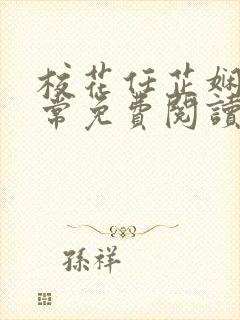 校花任芷娴
常免费閱讀
孫祥